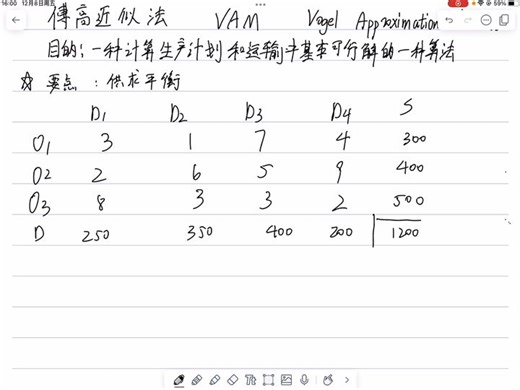 16:00 12月6日周五 59%
傅高近似法 VAM Vogel Approximation
目的:一种计算生产计划和运输中基本可行解的一种算法
☆ 要点:供求平衡
D1 D2 D3 D4 S
O1 3 1 7 4 300
O2 2 6 5 9 400
O3 8 3 3 2 500
D 250 350 400 200 1200